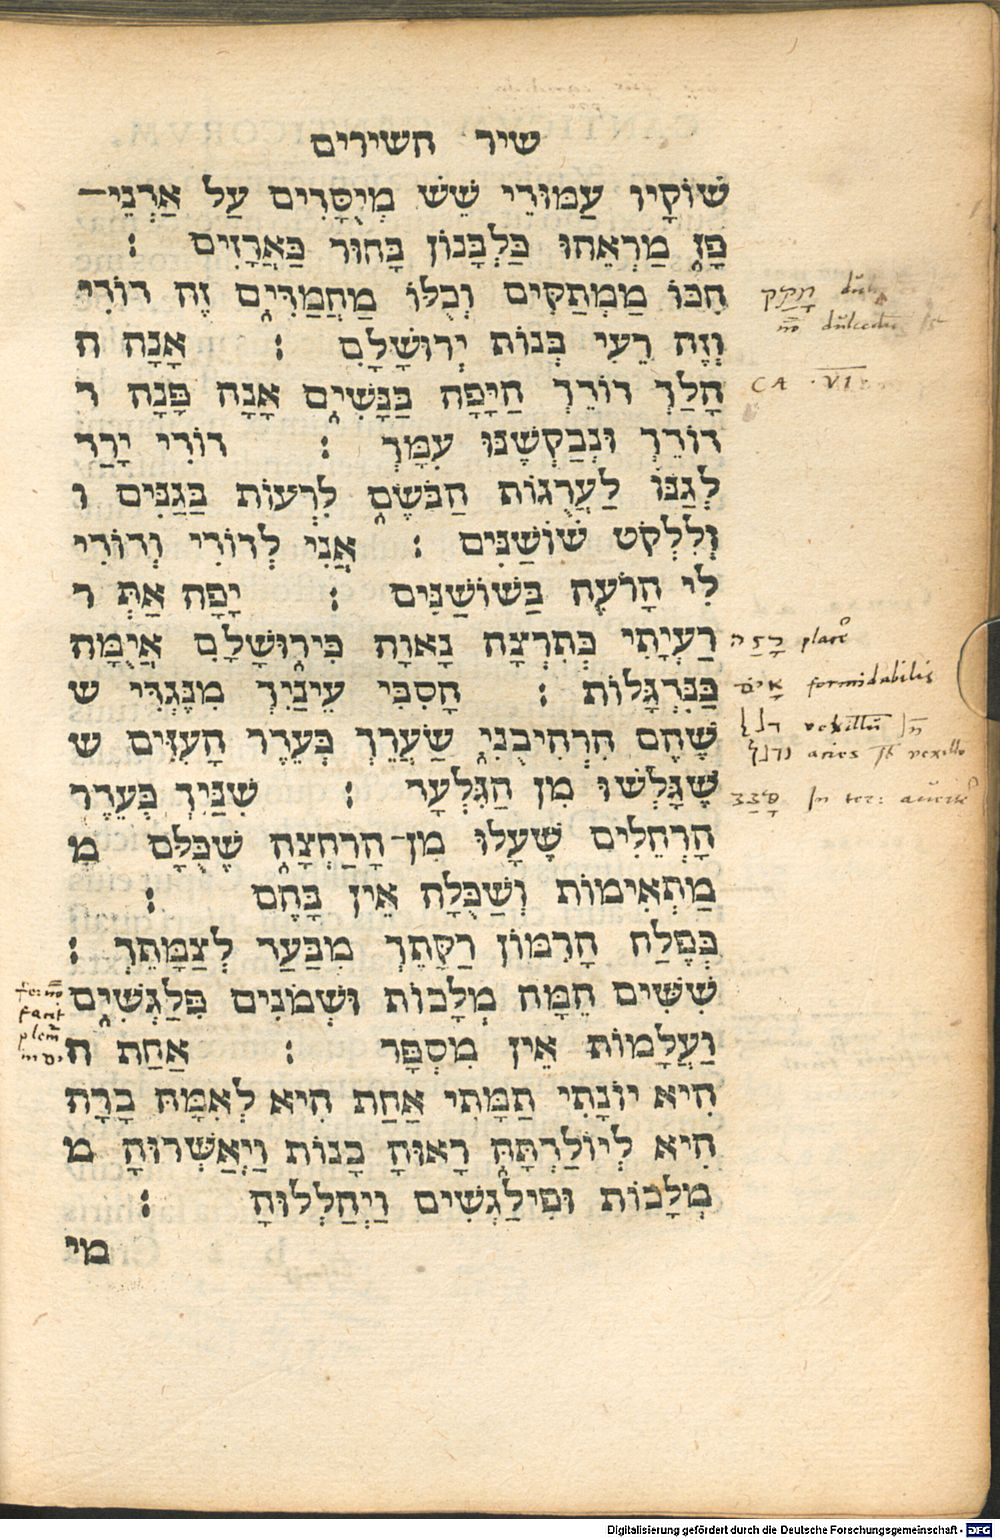 שיר השירים
שׁוֹקָיו עַמּוּדֵי שֵׁשׁ מְיֻסָּדִים עַל אַדְנֵי־
פָז מַרְאֵהוּ כַּלְּבָנוֹן בָּחוּר כָּאֲרָזִים :
חִכּוֹ מַמְתַקִּים וְכֻלּוֹ מַחֲמַדִּים זֶה דוֹדִי
וְזֶה רֵעִי בְּנוֹת יְרוּשָׁלָםִ : אָנָה ה
הָלַךְ דּוֹדֵךְ הַיָּפָה בַּנָּשִׁים אָנָה פָּנָה ד
דוֹדֵךְ וּנְבַקְשֶׁנּוּ עִמָּךְ : דוֹדִי יָרַד
לְגַנּוֹ לַעֲרֻגוֹת הַבֹּשֶׂם לִרְעוֹת בַּגַּנִּים ו
וְלִלְקֹט שׁוֹשַׁנִּים : אֲנִי לְדוֹדִי וְדוֹדִי
לִי הָרֹעֶה בַּשׁוֹשַׁנִּים : יָפָה אַתְּ ר
רַעְיָתִי כְּתִרְצָה נָאוָה כִּירוּשָׁלָםִ אֲיֻמָּה
כַּנִּדְגָּלוֹת : הָסִבִּי עֵינַיִךְ מִנֶּגְדִּי ש
שֶׁהֵם הִרְהִיבֻנִי שַׂעֲרֵךְ כְּעֵדֶר הָעִזִּים ש
שֶׁגָּלְשׁוּ מִן הַגִּלְעָד : שִׁנַּיִךְ כְּעֵדֶר
הָרְחֵלִים שֶׁעָלוּ מִן־הָרַחְצָה שֶׁכֻּלָּם מ
מַתְאִימוֹת וְשַׁכֻּלָה אֵין בָּהֶם :
כְּפֶלַח הָרִמּוֹן רַקָּתֵךְ מִבַּעַד לְצַמָּתֵךְ :
שִׁשִּׁים הֵמָּה מְלָכוֹת וּשְׁמֹנִים פִּלַגְשִׁים
וַעֲלָמוֹת אֵין מִסְפָּר : אַחַת ה
הִיא יוֹנָתִי תַמָּתִי אַחַת הִיא לְאִמָּהּ בָרָה
הִיא לְיוֹלַדְתָּהּ רָאוּהָ בָנוֹת וַיְאַשְּׁרוּהָ מ
מְלָכוֹת וּפִילַגְשִׁים וַיְהַלְלוּהָ :
מי
CA · VI
רָצָה place͠
אָים formidabilis
דגל vexillu͞
נדגל acies